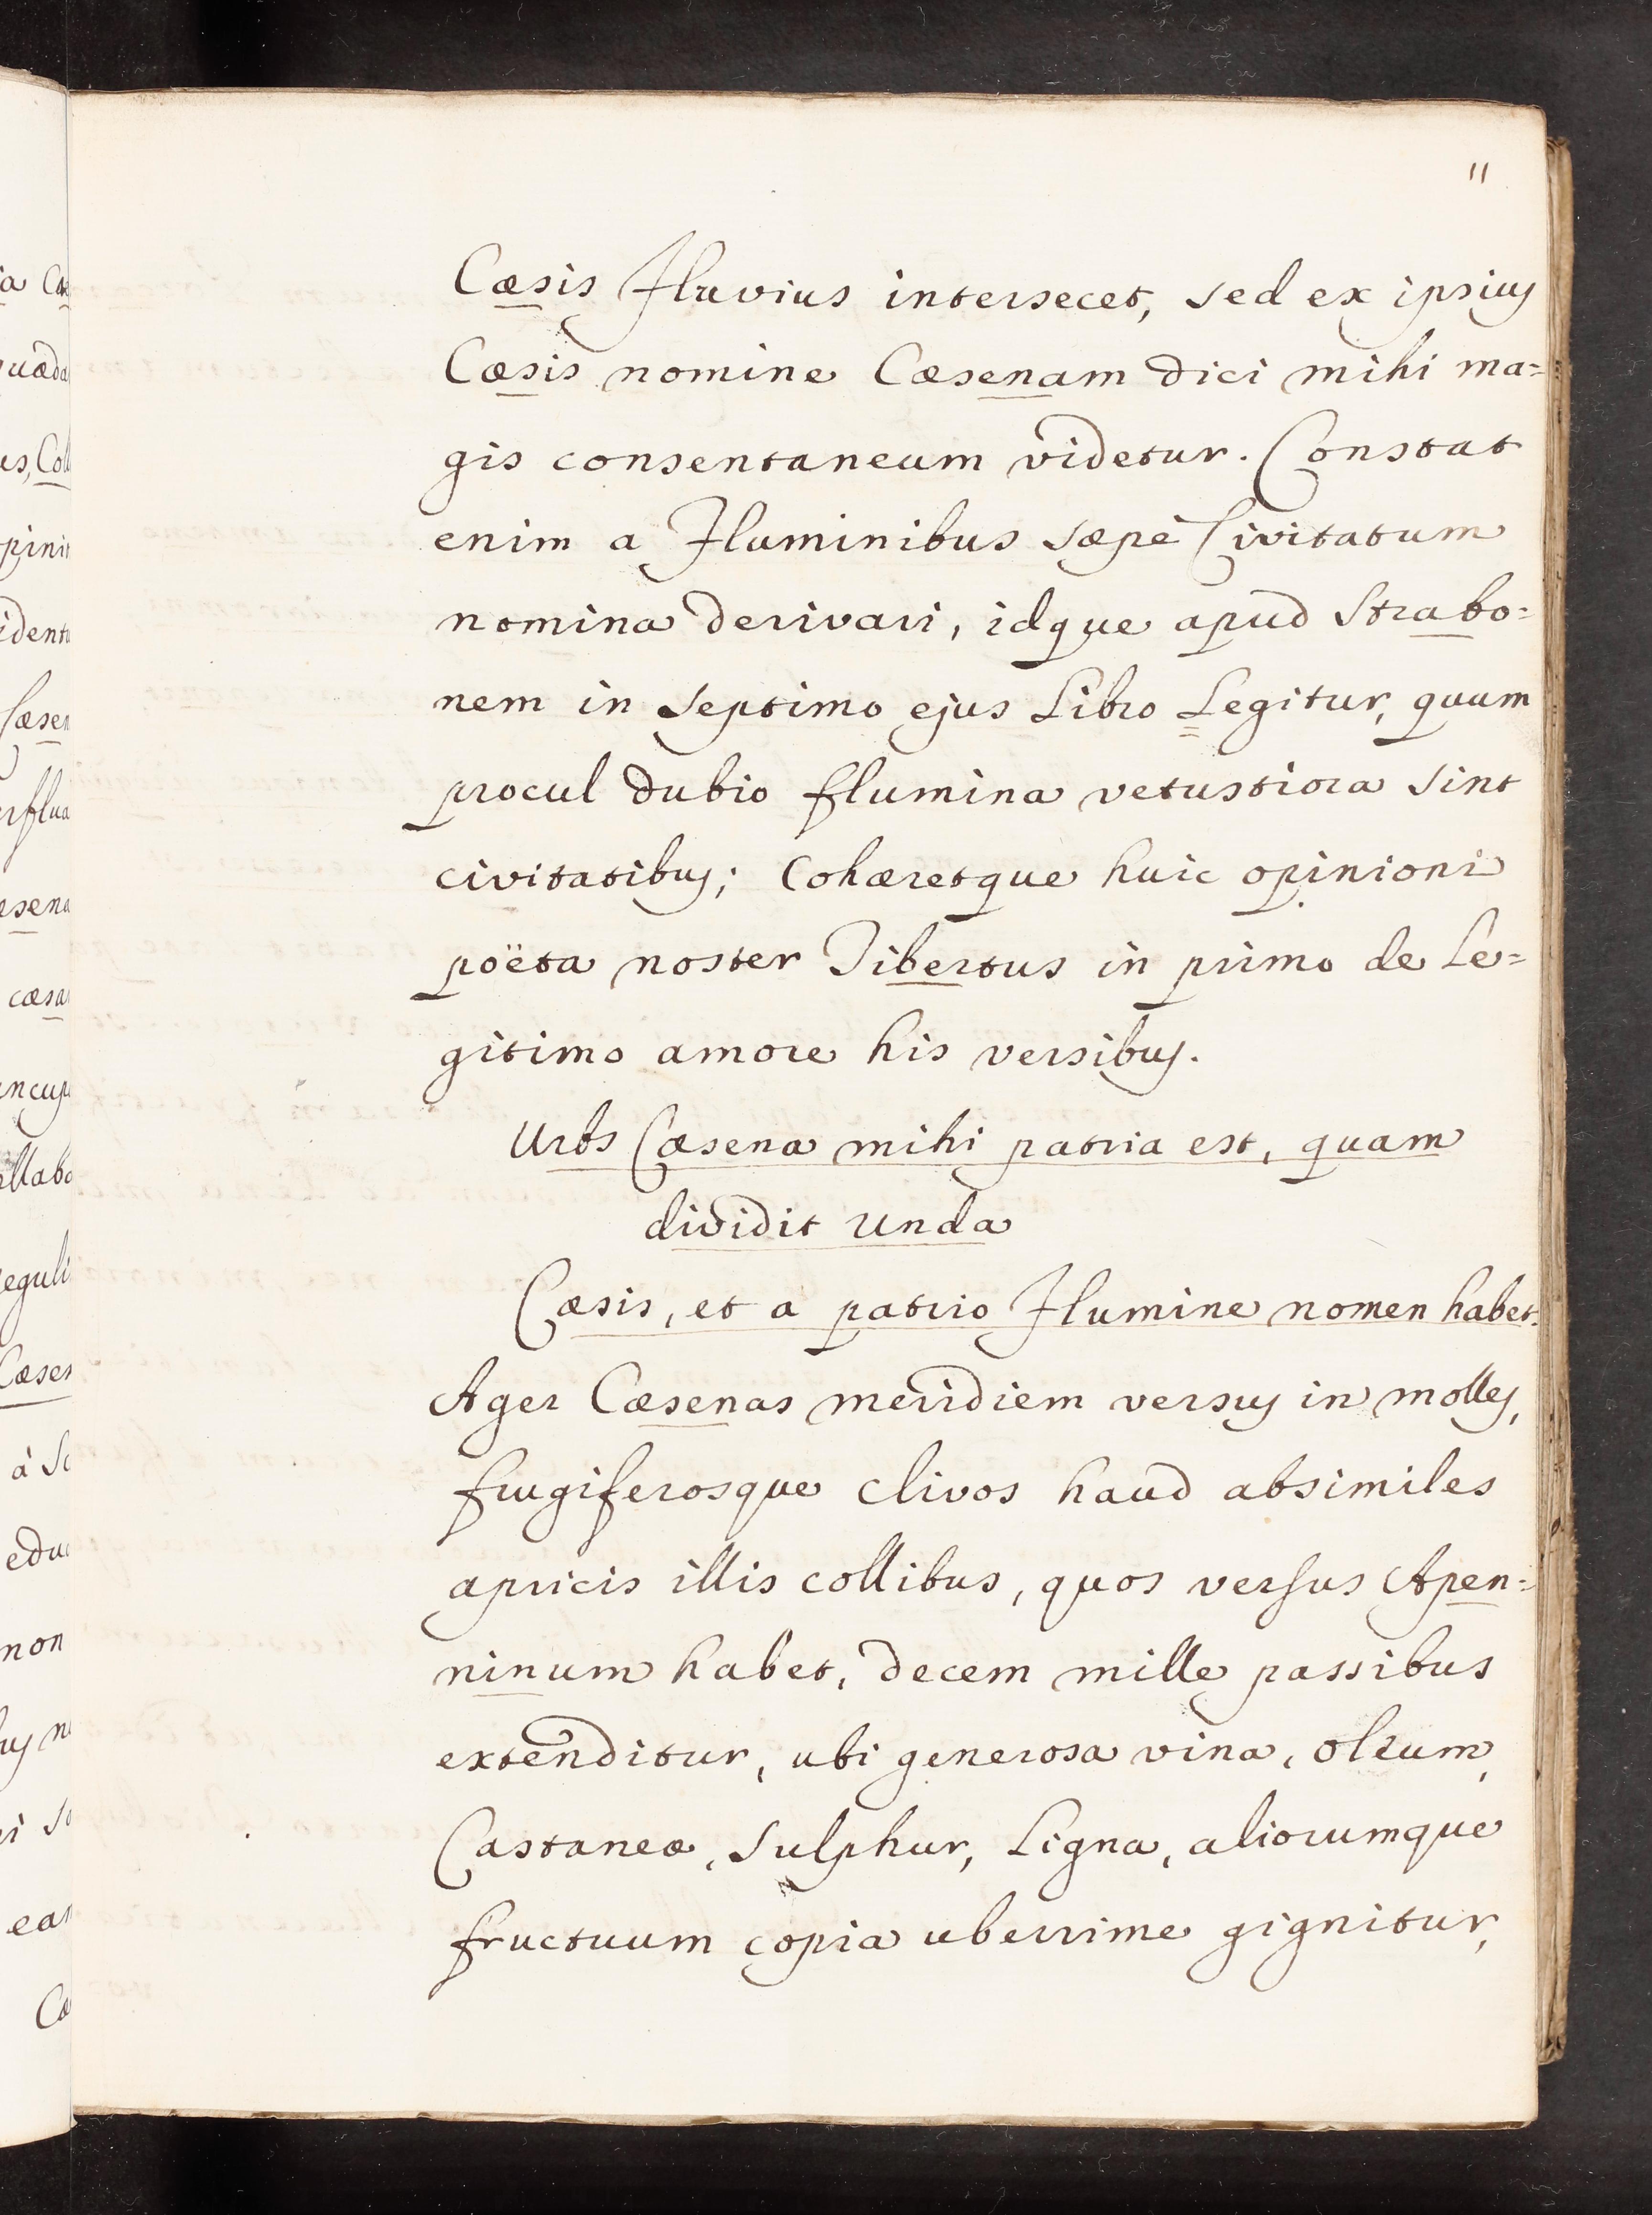 11
Cæsis Fluvius intersecet, sed ex ipsius
Cæsis nomine Cæsenam dici mihi ma=
gis consentaneum videtur. Constat
enim a Fluminibus sæpè Civitatum
nomina derivari, idque apud Strabo=
nem in septimo ejus Libro Legitur, quum
procul dubio flumina vetustiora sint
civitatibus; Cohæretque huic opinioni
poëta noster Tibertus in primo de Le=
gitimo amore his versibus.
Urbs Cæsena mihi patria est, quam
dividit unda
Cæsis, et a patrio Flumine nomen habet.
Ager Cæsenas meridiem versus in molles,
frugiferosque clivos haud absimiles
apricis illis collibus, quos versus Apen=
ninum habet, decem mille passibus
extenditur, ubi generosa vina, oleum,
Castaneæ, sulphur, Ligna, aliorumque
fructuum copia uberrime gignitur,